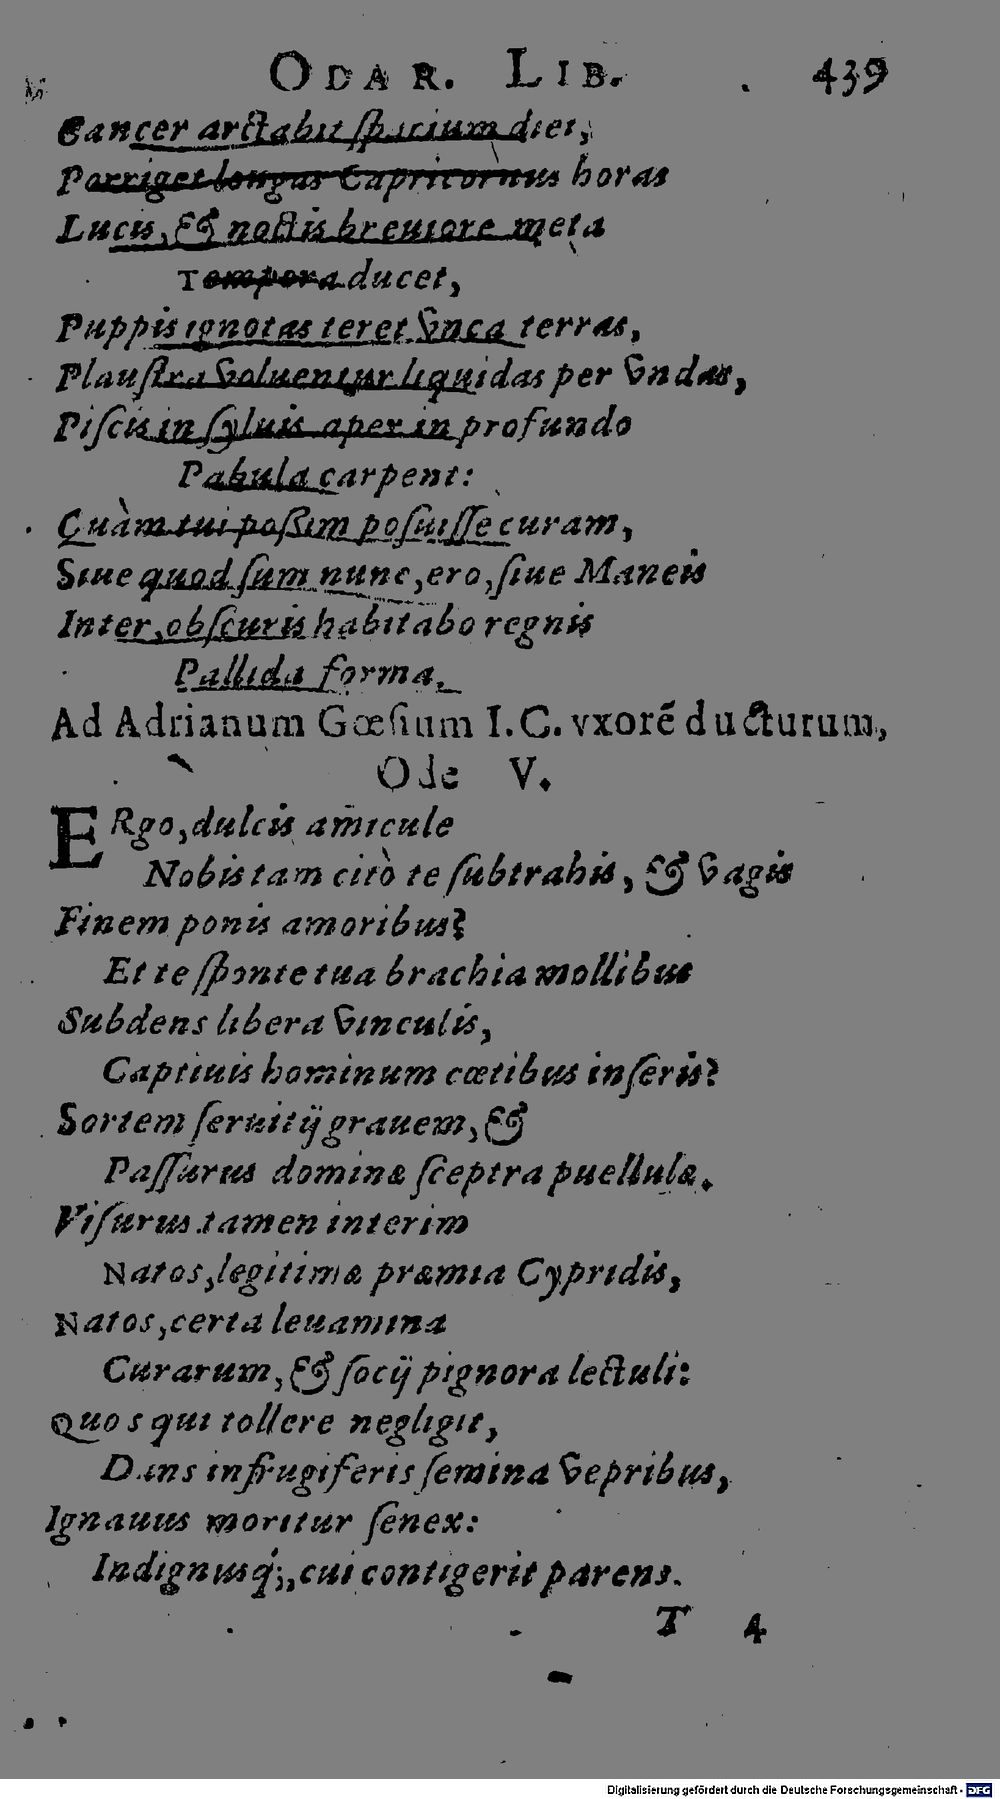 ODAR. LIB. 439
Cancer arctabit spacium diei,
Porriget longas Capricornus horas
Lucis, & noctis breuiore meta
Tempora ducet,
Puppis ignotas teret vnca terras,
Plaustra voluentur liquidas per vndas,
Piscis in syluis aper in profundo
Pabula carpent:
Quàm tui poßim posuisse curam,
Siue quod sum nunc, ero, siue Maneis
Inter, obscuris habitabo regnis
Pallida forma.
Ad Adrianum Gœsium I. C. vxorē ducturum,
Ode V.
ERgo, dulcis amicule
Nobis tam citò te subtrahis, & vagis
Finem ponis amoribus?
Et te sponte tua brachia mollibus
Subdens libera vinculis,
Captiuis hominum cœtibus inseris?
Sortem seruitij grauem, &
Passurus dominæ sceptra puellulæ.
Visurus tamen interim
Natos, legitimæ præmia Cypridis,
Natos, certa leuamina
Curarum, & socij pignora lectuli:
Quos qui tollere negligit,
Dans infrugiferis semina vepribus,
Ignauus moritur senex:
Indignusq́;, cui contigerit parens.
T 4
Digitalisierung gefördert durch die Deutsche Forschungsgemeinschaft - DFG